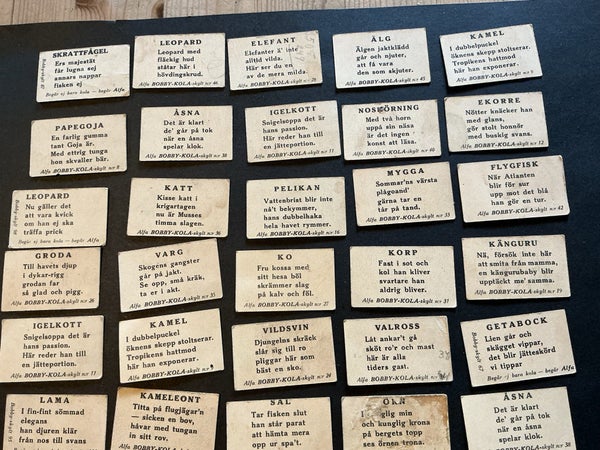 SKRATTFÅGEL
Ers majestät
får lugna sej
annars nappar
fisken ej
Begär ej bara kola — begär Alfa
Bobby-skylt
LEOPARD
Leopard med
fläckig hud
ståtar här i
hövdingskrud.
Alfa BOBBY-KOLA-skylt n:r 46
ELEFANT
Elefanter ä' inte
alltid vilda.
Här ser du en
av de mera milda.
Alfa BOBBY-KOLA-skylt n:r
ÄLG
Älgen jaktklädd
går och njuter,
att få vara
den som skjuter.
Alfa BOBBY-KOLA-skylt n:r 45
KAMEL
I dubbelpuckel
öknens skepp stoltserar.
Tropikens hattmod
här han exponerar.
Alfa BOBBY-KOLA-skylt n:r
PAPEGOJA
En farlig gumma
tant Goja är.
Med ettrig tunga
hon skvaller bär.
Alfa BOBBY-KOLA-skylt n:r 8
ÅSNA
Det är klart
de' går på tok
när en åsna
spelar klok.
Alfa BOBBY-KOLA-skylt n:r 38
IGELKOTT
Snigelsoppa det är
hans passion.
Här reder han till
en jätteportion.
Alfa BOBBY-KOLA-skylt n:r 11
NOSHÖRNING
Med två horn
uppå sin näsa
är det ingen
konst att läsa.
Alfa BOBBY-KOLA-skylt n:r 40
EKORRE
Nötter knäcker han
med glans,
gör stolt honnör
med buskig svans.
Alfa BOBBY-KOLA-skylt n:r 12
LEOPARD
Nu gäller det
att vara kvick
om han ej ska
träffa prick
Begär ej bara kola — begär Alfa
Bobby-skylt
KATT
Kisse katt i
krigartagen
nu är Musses
timma slagen.
Alfa BOBBY-KOLA-skylt n:r 36
PELIKAN
Vattenbrist blir inte
nå't bekymmer,
hans dubbelhaka
hela havet rymmer.
Alfa BOBBY-KOLA-skylt n:r 16
MYGGA
Sommar'ns värsta
plågoand'
gärna tar en
tår på tand.
Alfa BOBBY-KOLA-skylt n:r 33
FLYGFISK
När Atlanten
blir för sur
upp mot det blå
han gör en tur.
Alfa BOBBY-KOLA-skylt n:r 42
GRODA
Till havets djup
i dykar-rigg
grodan far
så glad och pigg.
Alfa BOBBY-KOLA-skylt n:r 26
VARG
Skogens gangster
går på jakt.
Se opp, små kräk,
ta er i akt.
Alfa BOBBY-KOLA-skylt n:r 35
KO
Fru kossa med
sitt hesa böl
skrämmer slag
på kalv och föl.
Alfa BOBBY-KOLA-skylt n:r 27
KORP
Fast i sot och
kol han kliver
svartare han
aldrig bliver.
Alfa BOBBY-KOLA-skylt n:r 31
KÄNGURU
Nä, försök inte här
att smita från mamma,
en kängurubaby blir
upptäckt me' samma.
Alfa BOBBY-KOLA-skylt n:r 19
IGELKOTT
Snigelsoppa det är
hans passion.
Här reder han till
en jätteportion.
Alfa BOBBY-KOLA-skylt n:r 11
KAMEL
I dubbelpuckel
öknens skepp stoltserar.
Tropikens hattmod
här han exponerar.
Alfa BOBBY-KOLA-skylt n:r
VILDSVIN
Djungelns skräck
slår sig till ro
pliggar här som
bäst en sko.
Alfa BOBBY-KOLA-skylt n:r 24
VALROSS
Låt ankar't gå
sköt ro'r och mast
här är alla
tiders gast.
Alfa BOBBY-KOLA-skylt n:r
GETABOCK
Lien går och
skägget vippar,
det blir jätteskörd
vi tippar
Begär ej bara kola — begär Alfa
Bobby-skylt
LAMA
I fin-fint sömmad
elegans
en djuren klär
från nos till svans
Bobby-skylt
KAMELEONT
Titta på flugjägar'n
— sicken en bov,
håvar med tungan
in sitt rov.
Alfa BOBBY-KOLA-skylt
SÄL
Tar fisken slut
han står parat
att hämta mera
opp ur spa't.
ÖRN
glig min
och kunglig krona
på bergets topp
ses örnen trona.
ÅSNA
Det är klart
de' går på tok
när en åsna
spelar klok.
Alfa BOBBY-KOLA-skylt n:r 38